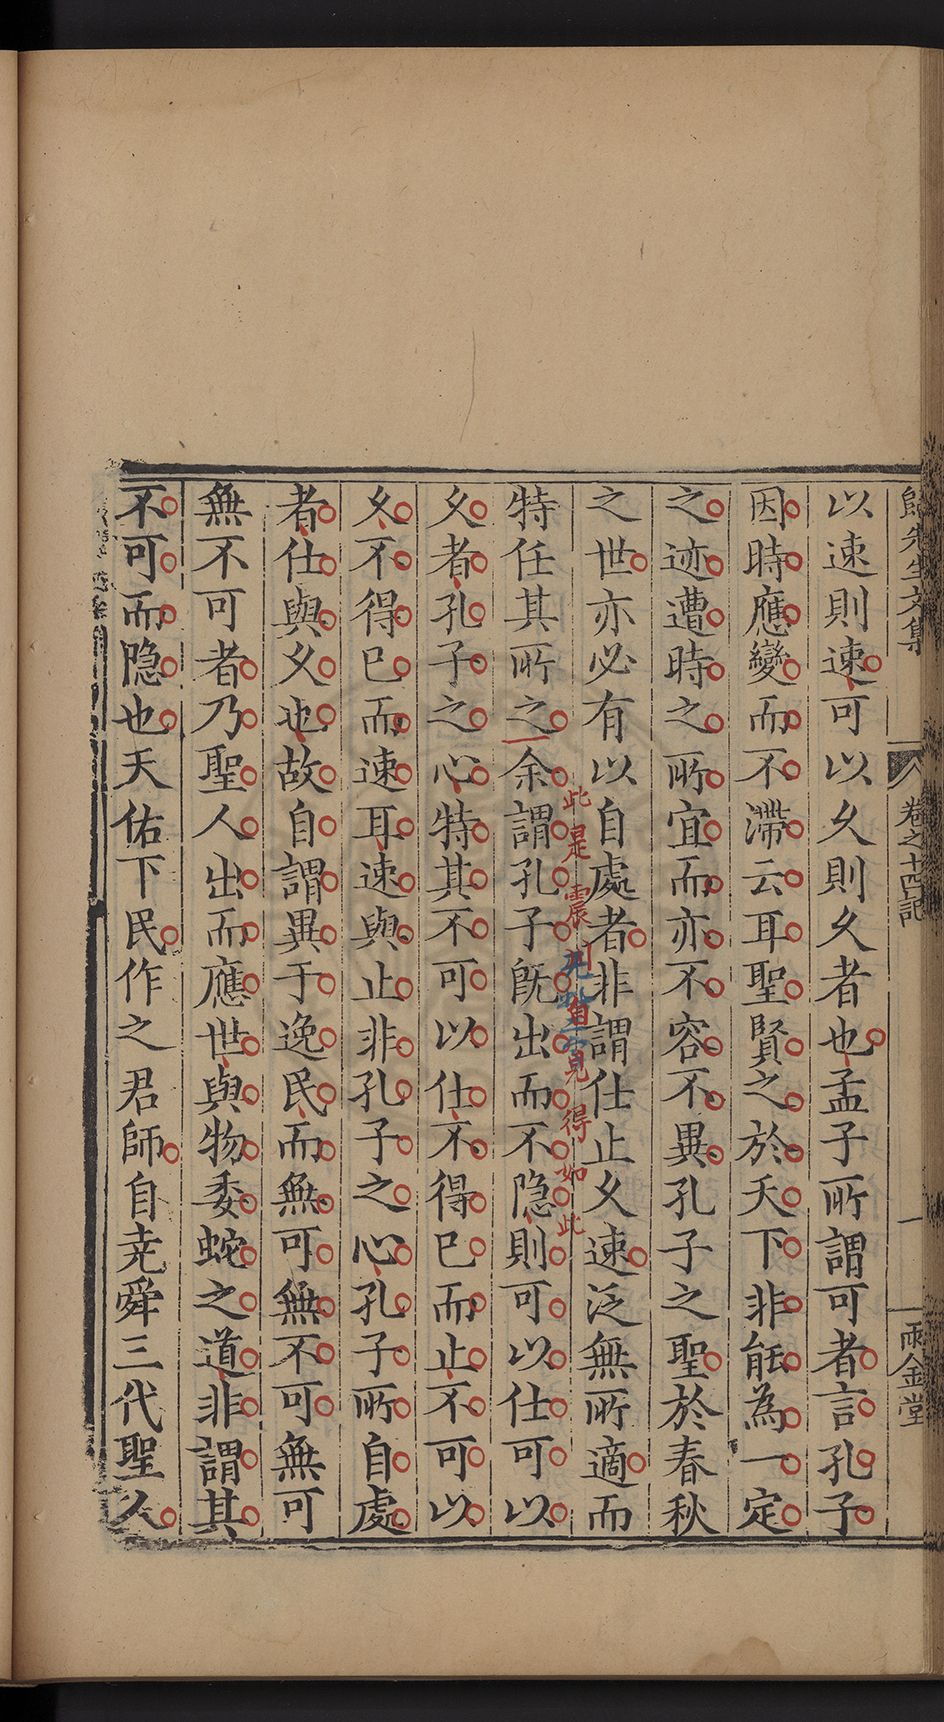 歸先生文集
卷之十四記
一
雨金堂
以速則速可以久則久者也孟子所謂可者言孔子
因時應變而不滯云耳聖賢之於天下非能為一定
之迹遭時之所宜而亦不容不異孔子之聖於春秋
之世亦必有以自處者非謂仕止久速泛無所適而
此是震川
見得如此
特任其所之余謂孔子旣出而不隐則可以仕可以
久者孔子之心特其不可以仕不得已而止不可以
久不得已而速耳速與止非孔子之心孔子所自處
者仕與久也故自謂異于逸民而無可無不可無可
無不可者乃聖人出而應世與物委蛇之道非謂其
不可而隐也天佑下民作之君師自尭舜三代聖人